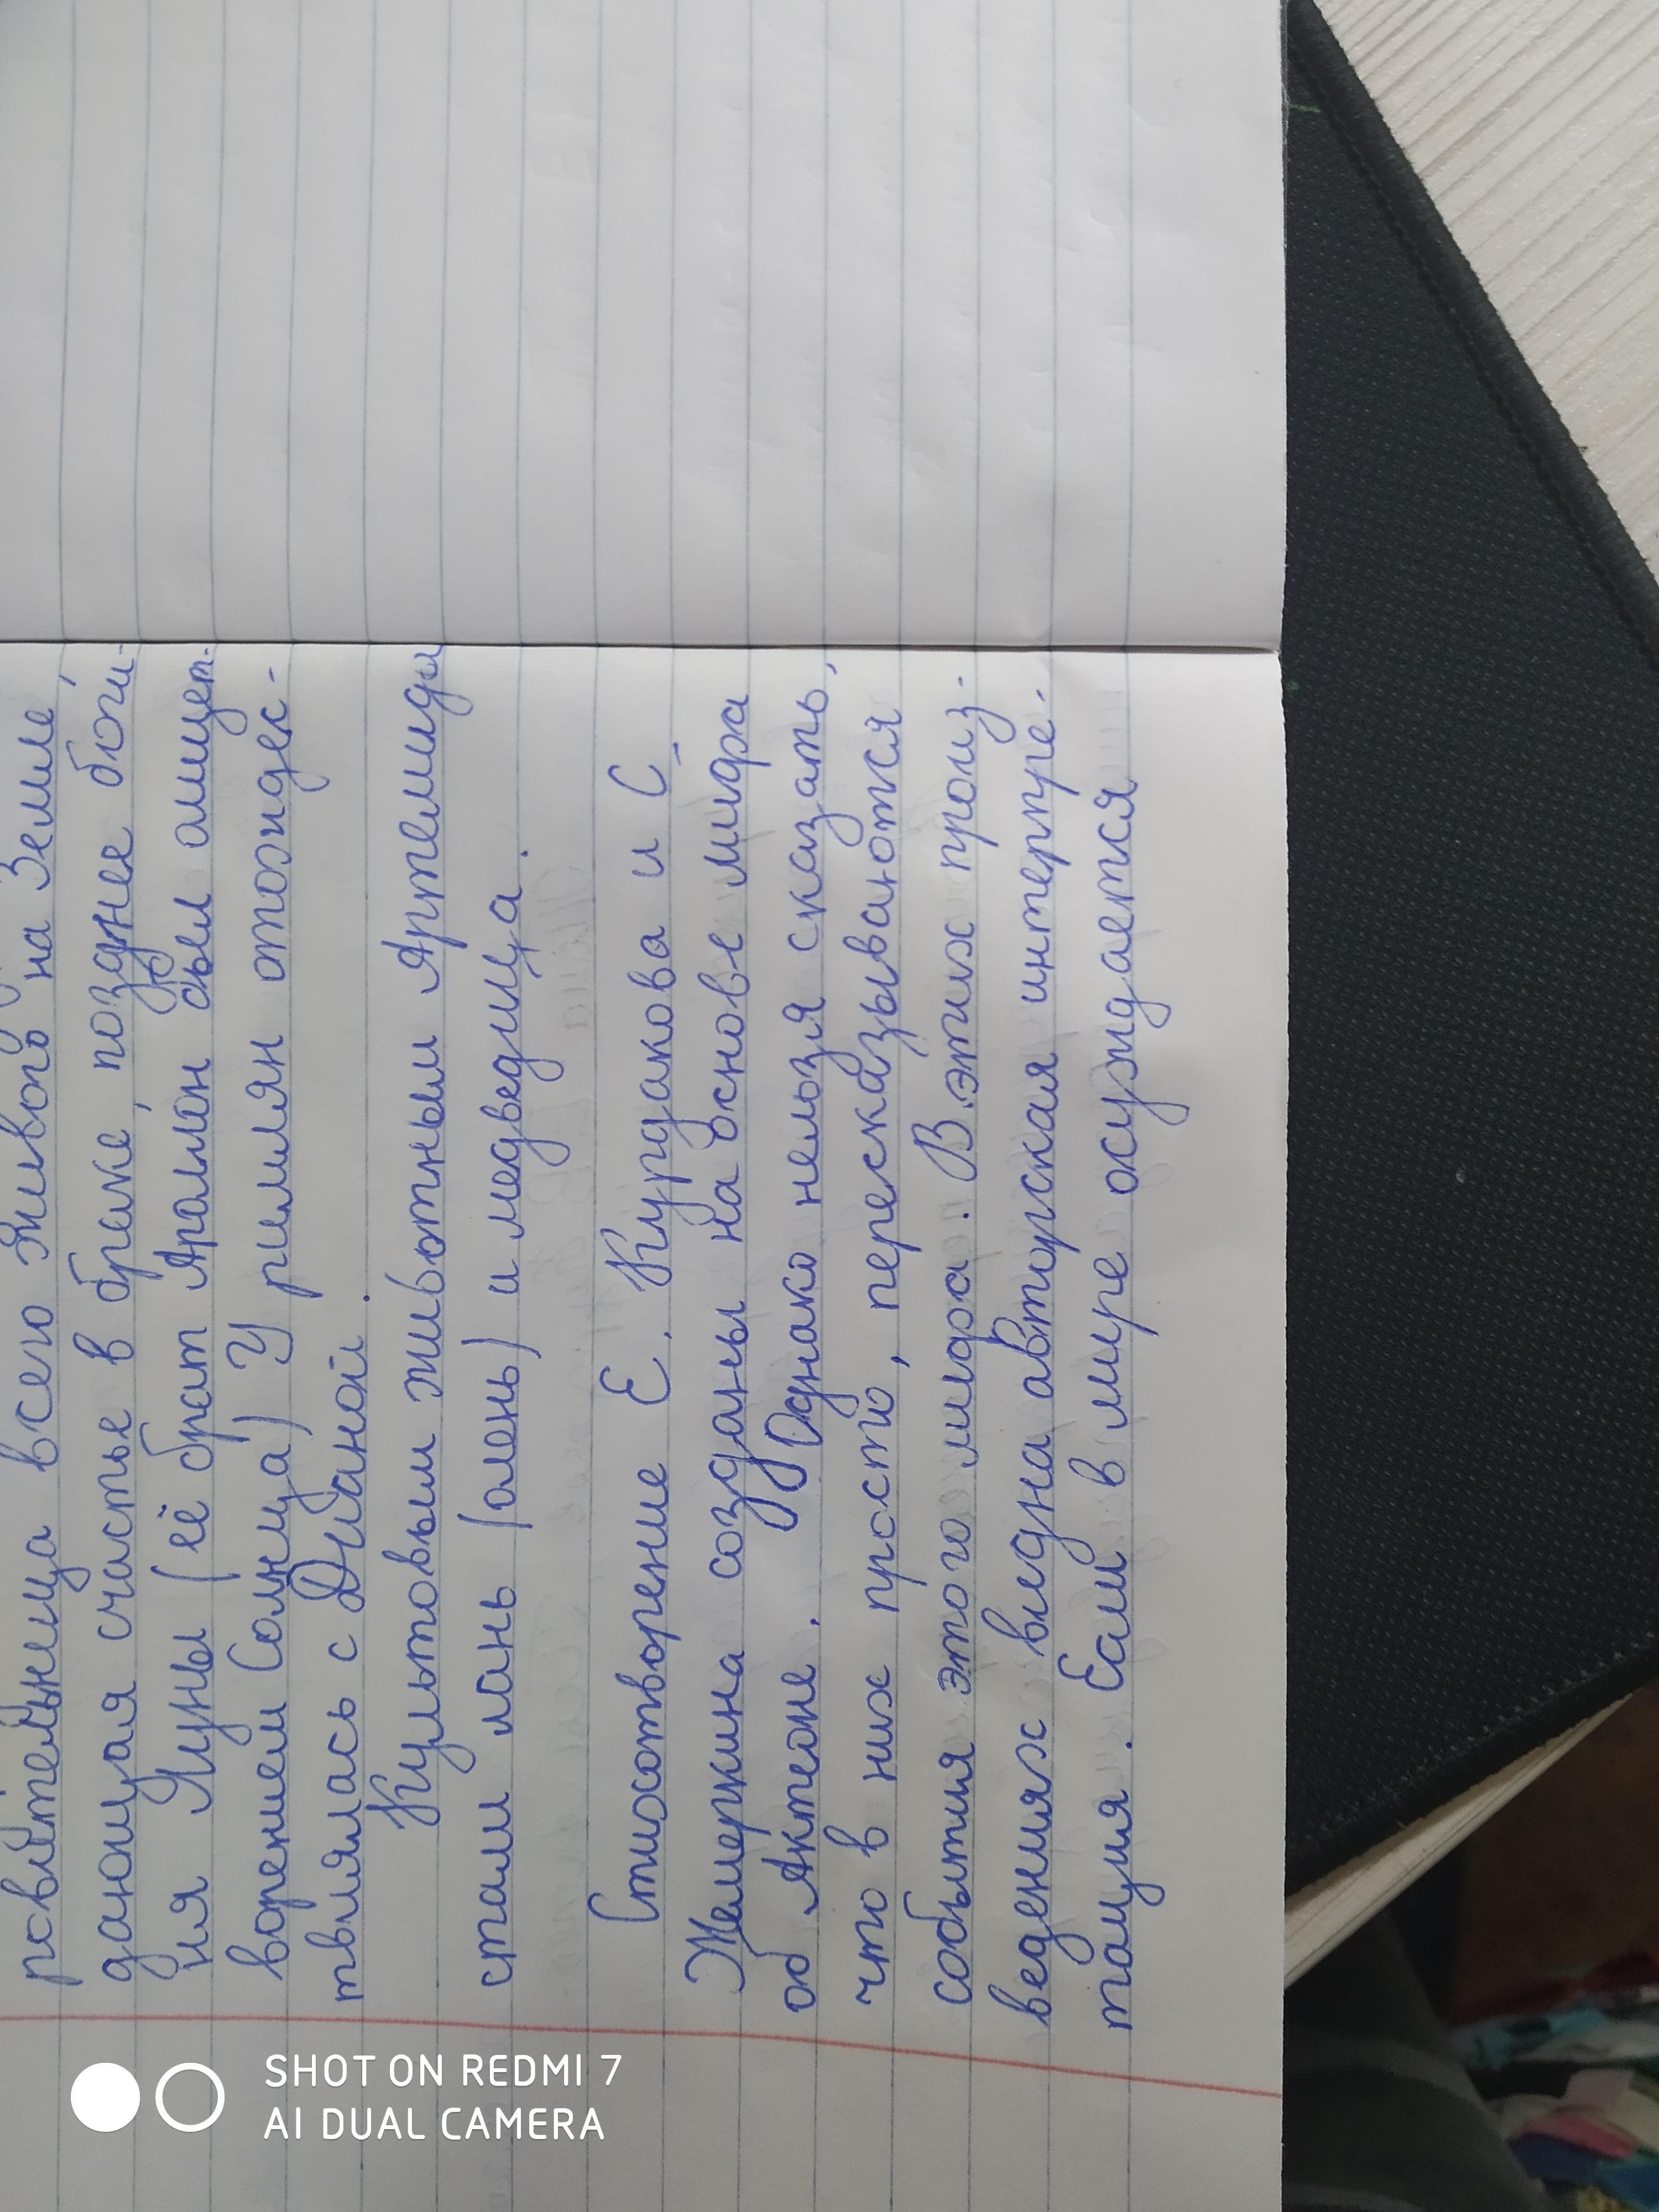 ровительница всего живого на Земле
дающая счастье в браке, позднее боги-
ня Луны (её брат Аполлон был олицет-
ворением Солнца) У римлян отождес-
твлялась с Дианой.
Культовыми животными Артемиды
стали лань (олень) и медведица.
Стихотворение Е. Курдакова и С.
Жемеркина созданы на основе мифа
об Актеоне. Однако нельзя сказать,
что в них просто, пересказываются
события этого мифа. В этих произ-
ведениях видна авторская интерпре-
тация. Если в мире осуждается
SHOT ON REDMI 7
AI DUAL CAMERA